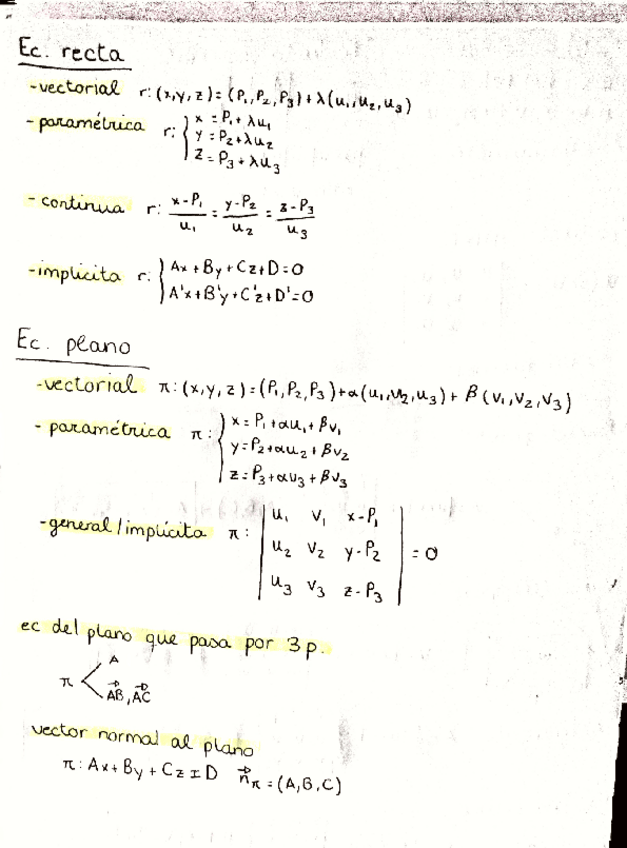 Ec. recta
-vectorial r: (x,y,z) = (P₁,P₂,P₃) + λ(u₁,u₂,u₃)
-paramétrica r: { x = P₁ + λu₁
y = P₂ + λu₂
z = P₃ + λu₃
- continua r: x-P₁/u₁ = y-P₂/u₂ = z-P₃/u₃
-implícita r: { Ax + By + Cz + D = 0
A'x + B'y + C'z + D' = 0
Ec. plano
-vectorial π: (x,y,z) = (P₁,P₂,P₃) + α(u₁,u₂,u₃) + β(v₁,v₂,v₃)
- paramétrica π: { x = P₁ + αu₁ + βv₁
y = P₂ + αu₂ + βv₂
z = P₃ + αu₃ + βv₃
-general/implícita π: | u₁ v₁ x-P₁ |
| u₂ v₂ y-P₂ | = 0
| u₃ v₃ z-P₃ |
ec del plano que pasa por 3 p.
π < A
AB⃗, AC⃗
vector normal al plano
π: Ax + By + Cz ± D n⃗π = (A,B,C)